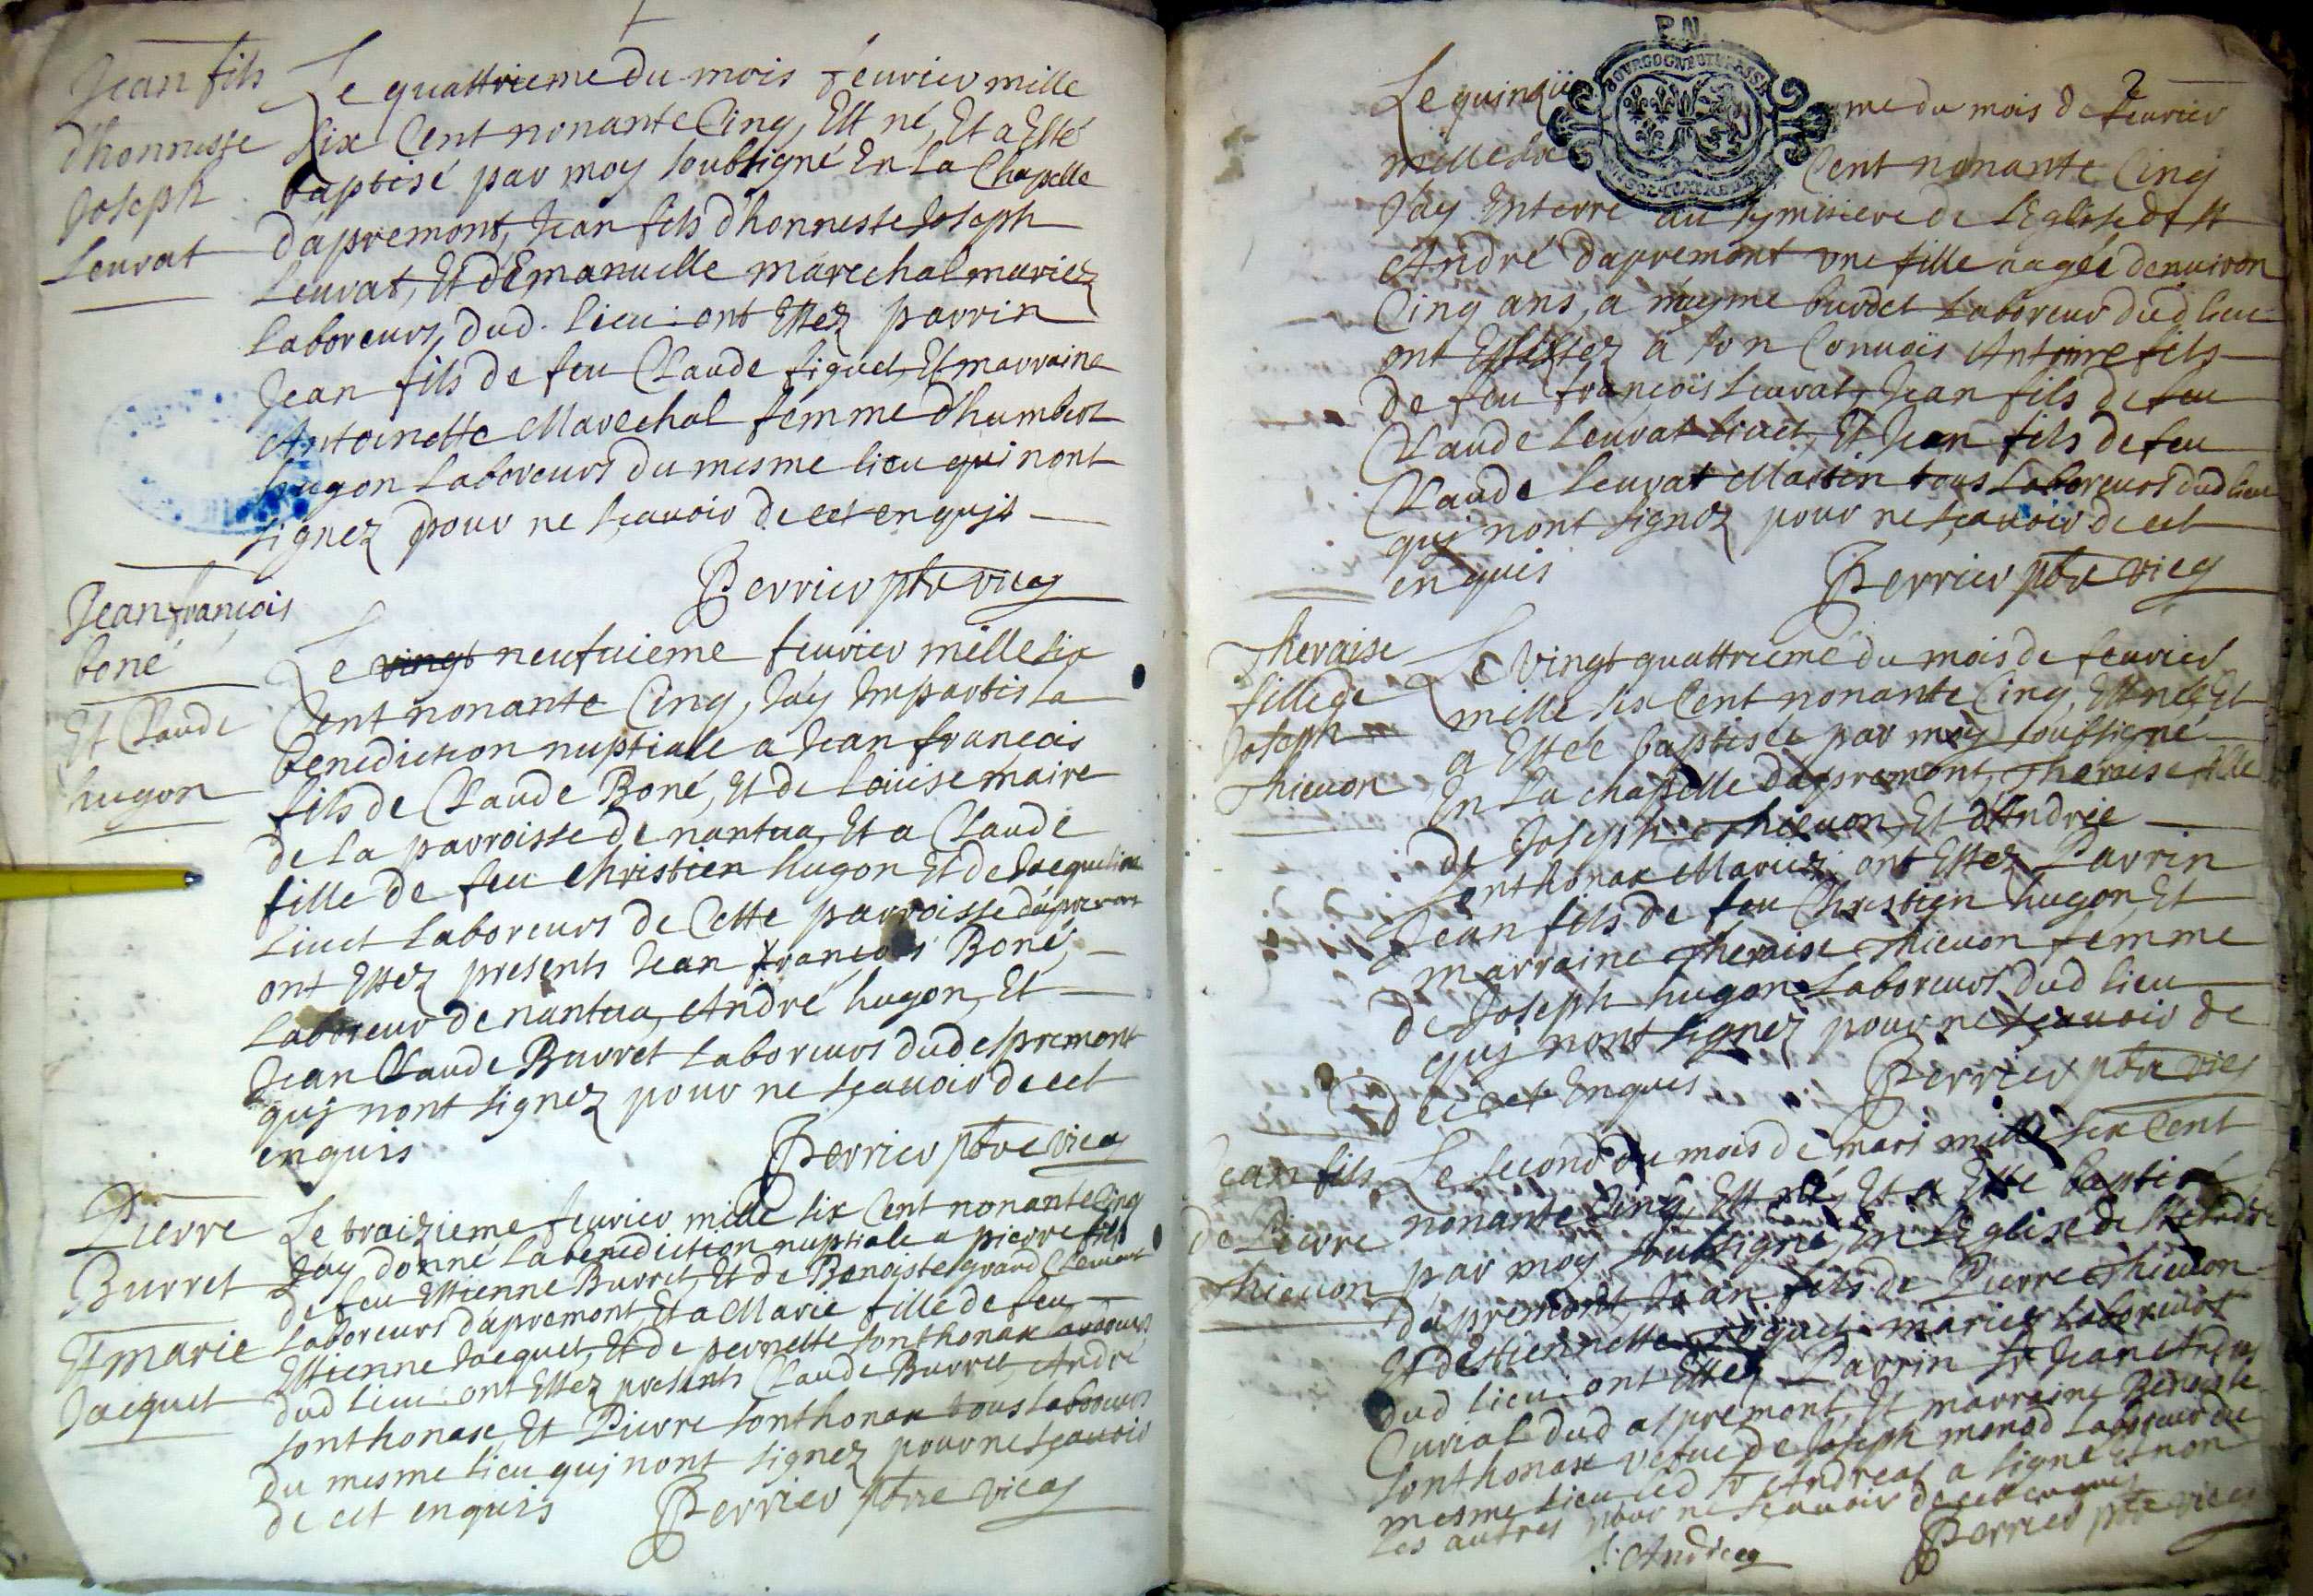 Jean fils
d'honneste
Joseph
Leuvat
Le quattrieme du mois feurier mille
six Cent nonante Cinq, Est né, Et a Esté
baptisé par moy soubsigné En La Chapelle
d'apremont, Jean fils d'honneste Joseph
Leuvat, Et d'Emanuelle marechal mariez
Laboreurs, dud. lieu: ont Estez parrin
Jean fils de feu Claude figuet, Et marraine
Antoinette Marechal femme d'humbert
hugon Laboreurs du mesme lieu qui nont
signez pour ne sçauoir de cet enquit
Perrier ptre vicq
Jean françois
boné
Et Claude
hugon
Le vingt neufuieme feurier mille six
Cent nonante Cinq, J'ay Imparti La
Benediction nuptiale a Jean francois
fils de Claude Boné, Et de Loüise maire
de La parroisse de nantua, Et a Claude
fille de feu Christien hugon Et de Jacqueline
Liuet Laboreurs de Cette parroisse d'apremont
ont Estez presents Jean françois Boné,
Laboreur de nantua, André hugon, Et
Jean Claude Burret Laboreurs dud aspremont
quj nont signez pour ne sçauoir de cet
enquis
Perrier ptre vicq
Pierre
Burret
Et marie
Jacquet
Le traizieme feurier mille six Cent nonante Cinq
J'ay donné La benediction nuptiale a pierre fils
de feu Estienne Burret, Et de Benoiste grand Clement
Laboreurs d'apremont, Et a Marie fille de feu
Estienne Jacquet, Et de pernette Sonthonax Laboreurs
dud lieu: ont Estez presents Claude Burret, André
Sonthonax, Et Pierre Sonthonax tous Laboreurs
du mesme lieu quj nont signez pour ne sçauoir
de cet enquis Perrier ptre vicq
Le quinziie me du mois de feurier
mille six Cent nonante Cinq
J'ay Enterré au symitiere de L'Eglise de st
André d'apremont une fille aagée denuiron
Cinq ans, a mayme burdet Laboreur dud lieu
ont Assistez a son Conuois Antoine fils
de feu françois Leuvat, Jean fils de feu
Claude Leuvat Liuet, Et Jean fils de feu
Claude Leuvat Martin tous Laboreurs dud lieu
quj nont signez pour ne sçauoir de cet
enquis
Perrier ptre vicq
Theraise
fille de
Joseph
Thieuon
Le Vingt quattrieme du mois de feurier
mille six Cent nonante Cinq, Est née, Et
a Estée baptisée par moy soubsigné
En La chapelle d'apremont, Theraise fille
de Joseph Thieuon, Et d'Andrée
Sonthonax Mariez: ont Estez Parrin
Jean fils de feu Christien hugon, Et
marraine Theraise Thieuon femme
de Joseph hugon Laboreurs dud lieu
quj nont signez pour ne sçauoir de
de cet Enquis
Perrier ptre vicq
Jean fils
de Pierre
Thieuon
Le second du mois de mars mille six Cent
nonante Cinq, Est né, Et a Esté baptisé
par moy soubsigné, En L'Eglise de St André
d'apremont, Jean fils de Pierre Thieuon
Et d'Estiennette figuet mariez Laboreurs
dud lieu: ont Estez Parrin Sr Jean Andreas
Curial dud aspremont, Et marraine Benoiste
Sonthonax vefue de Joseph monod Laboreur du
mesme lieu led Sr Andreas a signé Et non
Les autres pour ne sçauoir de cet enquis
Perrier ptre vicq